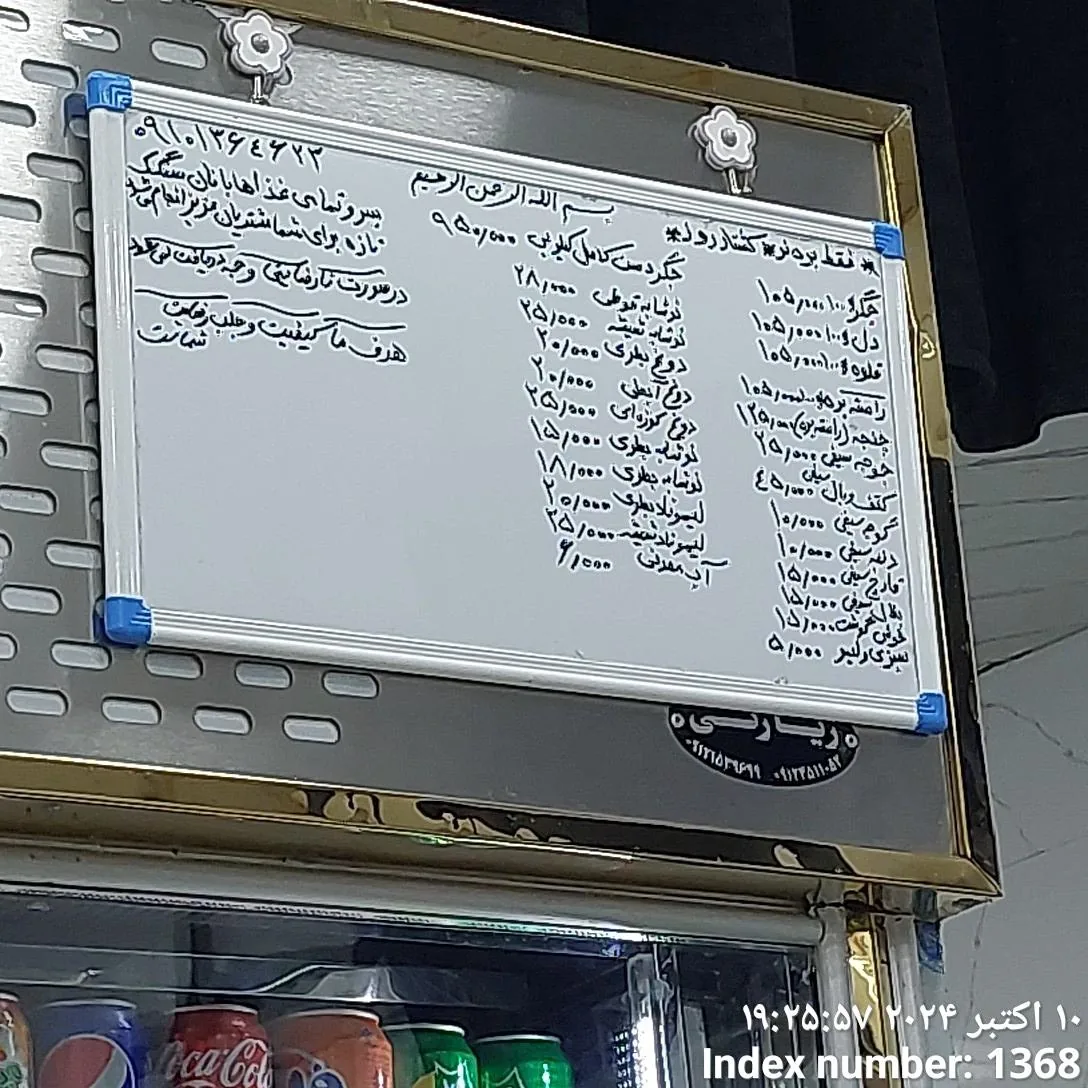 بسم الله الرحمن الرحیم
* فقط بره نر * کشتار روز *
جگر ۱۰۰g ۱۰۵,۰۰۰
دل ۱۰۰g ۱۰۵,۰۰۰
قلوه ۱۰۰g ۱۰۵,۰۰۰
راسته بره ۱۰۵,۰۰۰
چنجه (راسته بره) ۱۲۵,۰۰۰
جوجه سیخی ۲۵,۰۰۰
کتف و بال سیخی ۴۵,۰۰۰
گوجه سیخی ۱۰,۰۰۰
دنبه سیخی ۱۰,۰۰۰
قارچ سیخی ۱۵,۰۰۰
سیخی ۱۵,۰۰۰
۱۵,۰۰۰
سبزی و لیمو ۵,۰۰۰
جگر دست کامل کیلویی ۹۵۰/۰۰۰
نوشابه قوطی ۲۸,۰۰۰
نوشابه شیشه ۲۵,۰۰۰
دوغ بطری ۲۰/۰۰۰
دوغ آبعلی ۲۰/۰۰۰
دوغ کوزه‌ای ۲۵/۰۰۰
نوشابه بطری ۱۵/۰۰۰
نوشابه بطری ۱۸/۰۰۰
لیموناد بطری ۲۰/۰۰۰
لیموناد شیشه ۲۵/۰۰۰
آب معدنی ۶/۰۰۰
۰۹۱۰۱۳۶۴۶۲۳
سرو تمامی غذاها با نان سنگک
تازه برای شما مشتریان عزیز انجام می‌شود
در صورت نارضایتی وجه دریافت نمی‌شود
هدف ما کیفیت و جلب رضایت
شماست
زیارتی
۰۹۱۲۱۵۳۹۶۹۹ ۰۹۱۲۲۵۱۱۰۵۲
Coca-Cola
۱۰ اکتبر ۲۰۲۴ ۱۹:۲۵:۵۷
Index number: 1368